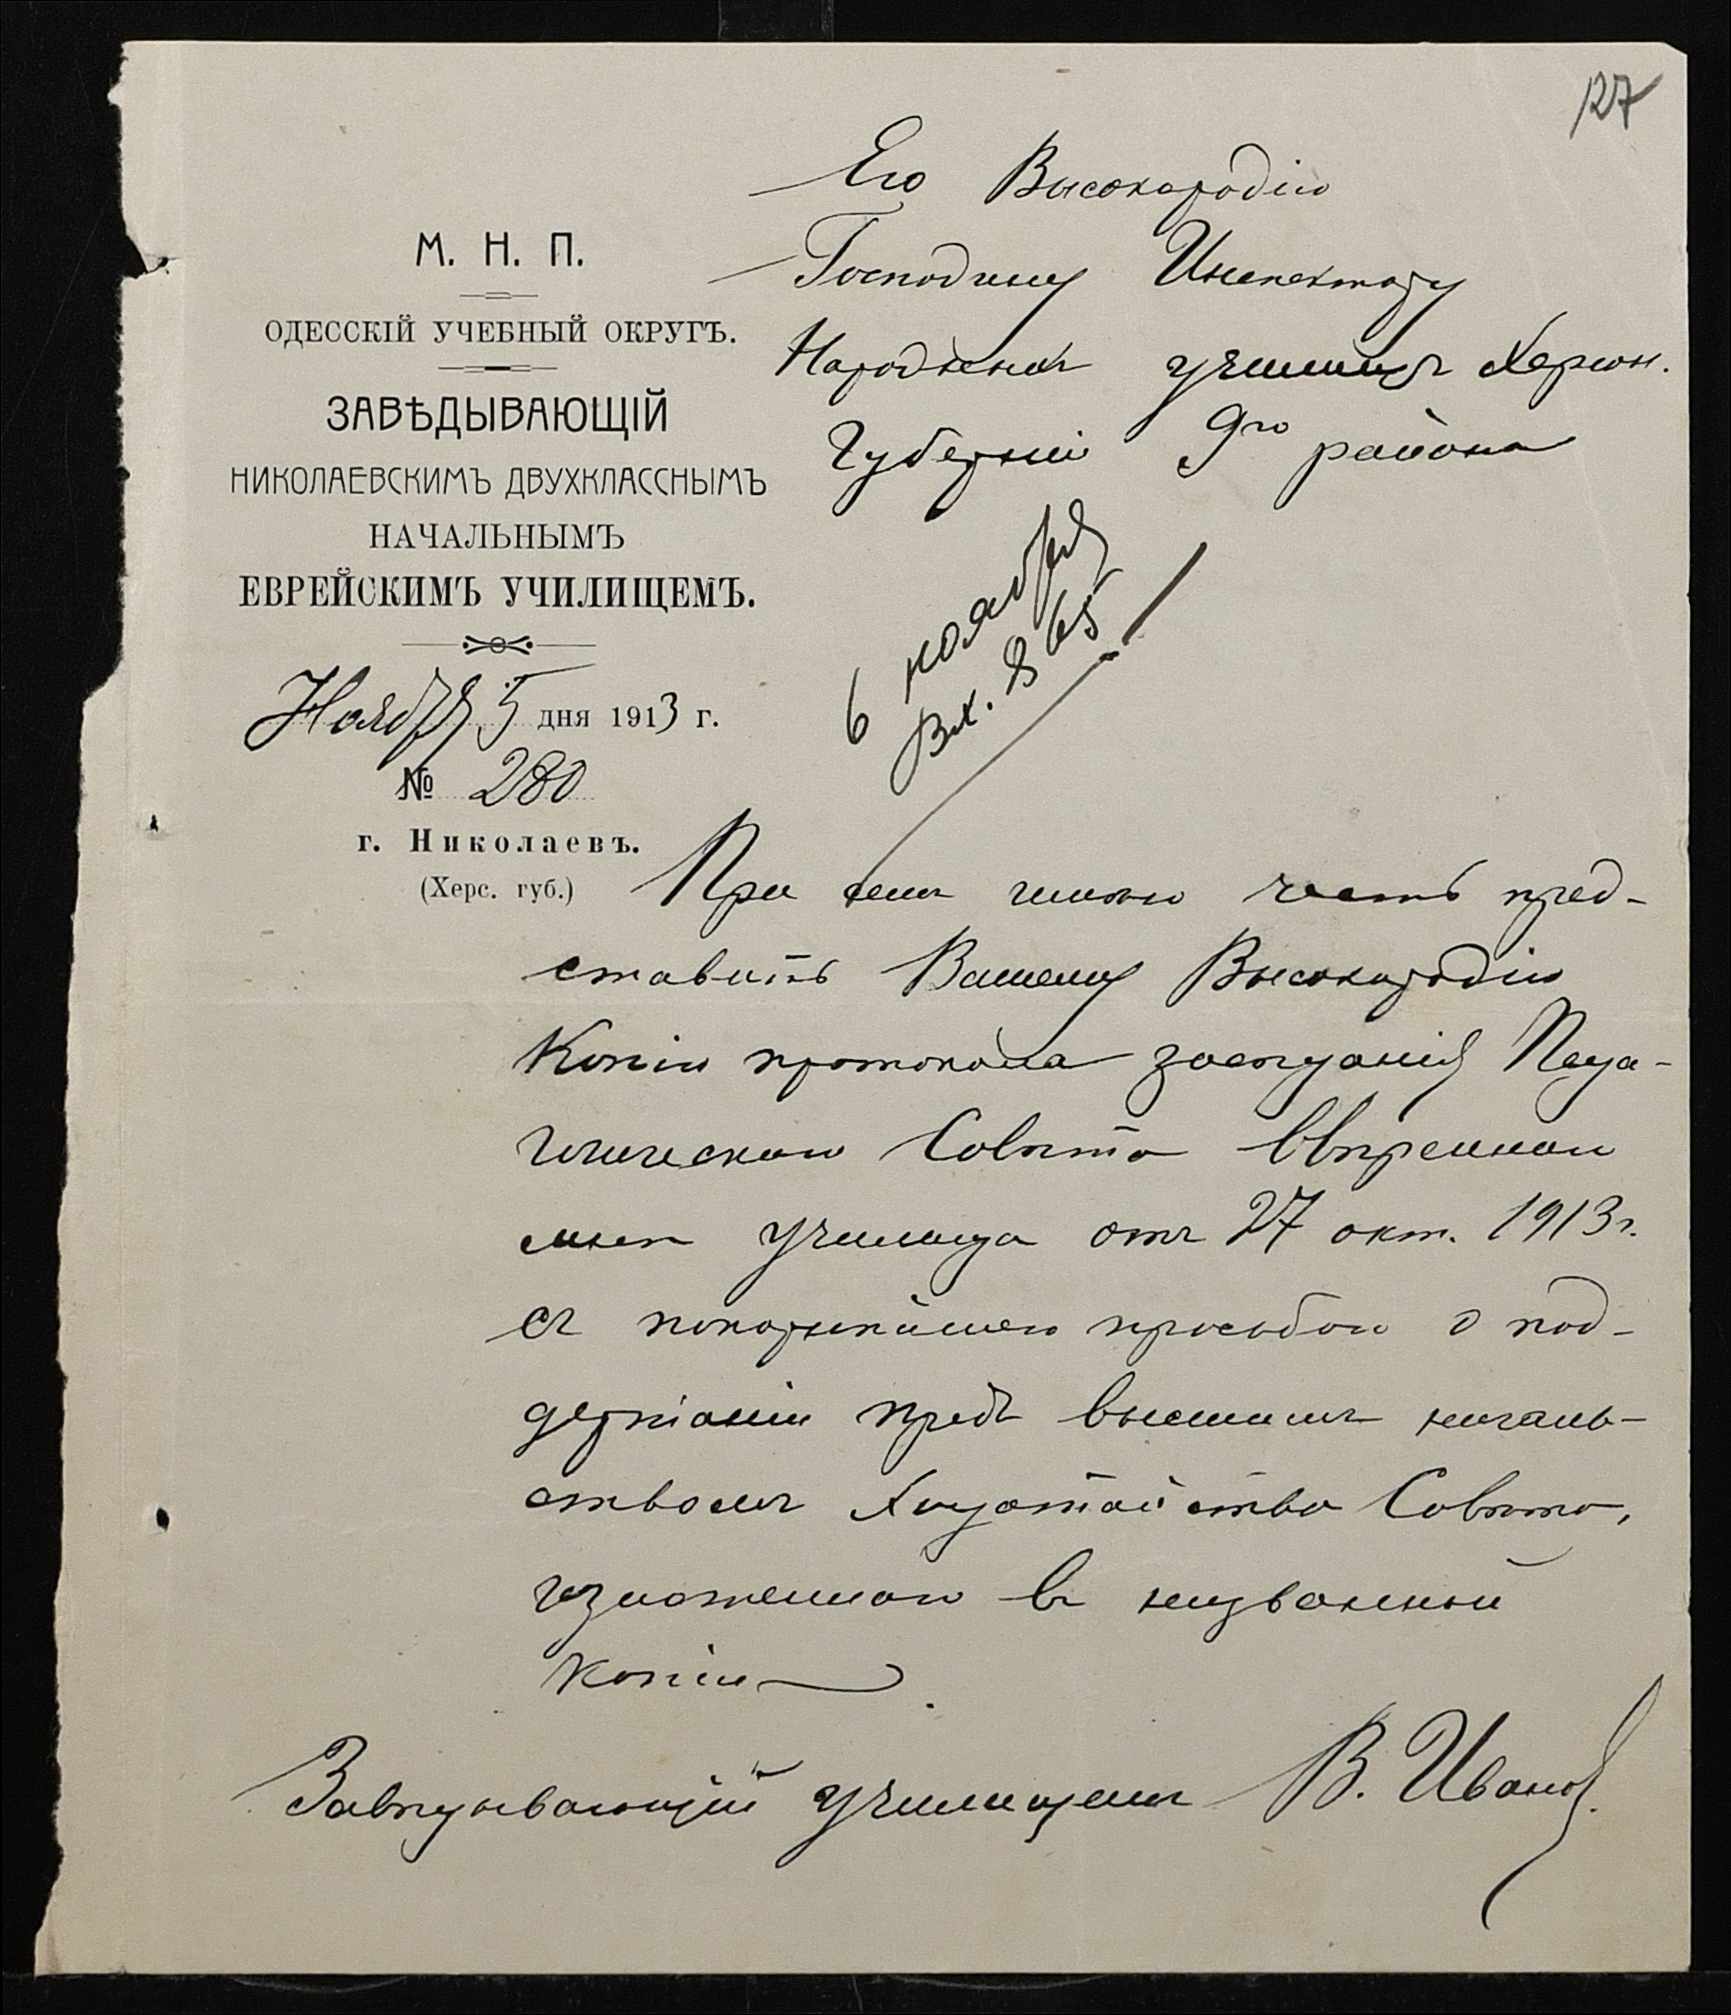 127
Его Высокородію
Господину Инспектору
Народныхъ училищъ Херсон.
Губерніи 9го района
М. Н. П.
ОДЕССКІЙ УЧЕБНЫЙ ОКРУГЪ.
ЗАВѢДЫВАЮЩІЙ
НИКОЛАЕВСКИМЪ ДВУХКЛАССНЫМЪ
НАЧАЛЬНЫМЪ
ЕВРЕЙСКИМЪ УЧИЛИЩЕМЪ.
Ноября 5 дня 1913 г.
№ 280
г. Николаевъ.
(Херс. губ.)
6 ноября
Вх. 865
При семъ имѣю честь пред-
ставить Вашему Высокородію
Копію протокола засѣданія Педа-
гогическаго Совѣта ввѣреннаго
мнѣ училища отъ 27 окт. 1913 г.
съ покорнѣйшею просьбою о под-
держаніи предъ высшимъ началь-
ствомъ Ходатайства Совѣта,
изложеннаго въ названной
копіи.
Завѣдывающій училищемъ В. Ивановъ